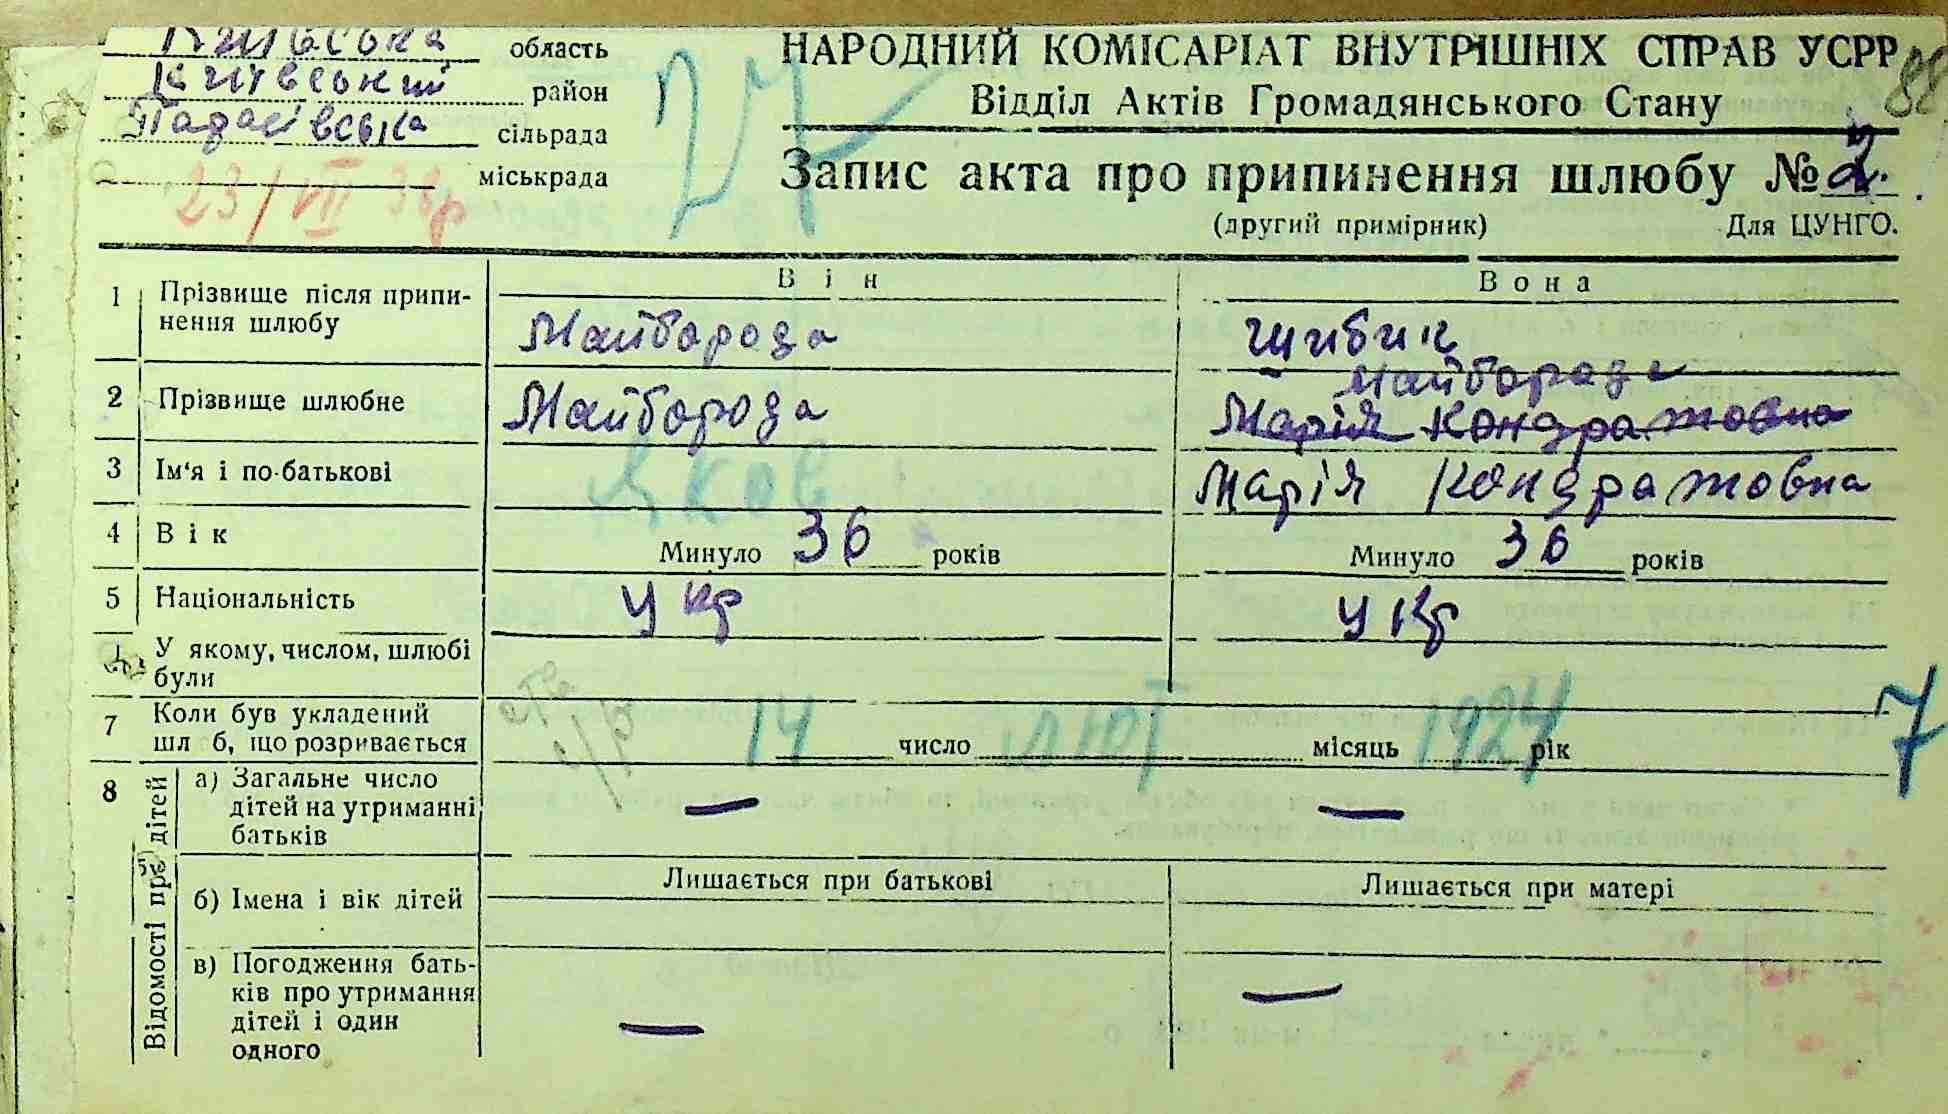 Київська область
Київський район
сільрада
міськрада
23/VII 36р
27
НАРОДНИЙ КОМІСАРІАТ ВНУТРІШНІХ СПРАВ УСРР
88
Відділ Актів Громадянського Стану
Запис акта про припинення шлюбу № 2.
(другий примірник) Для ЦУНГО.
Він Вона
1 Прізвище після припинення шлюбу
Майборода
Шибик
2 Прізвище шлюбне
Майборода
Майборода
Марія Кондратовна
3 Ім'я і по-батькові
Яков
Марія Кондратовна
4 Вік
Минуло 36 років
Минуло 36 років
5 Національність
Укр
Укр
У якому, числом, шлюбі
були
7 Коли був укладений
шл б, що розривається
14 число лют місяць 1924 рік
7
8 Відомості про дітей
а) Загальне число
дітей на утриманні
батьків
—
—
б) Імена і вік дітей
Лишається при батькові
Лишається при матері
в) Погодження бать-
ків про утримання
дітей і один
одного
—
—